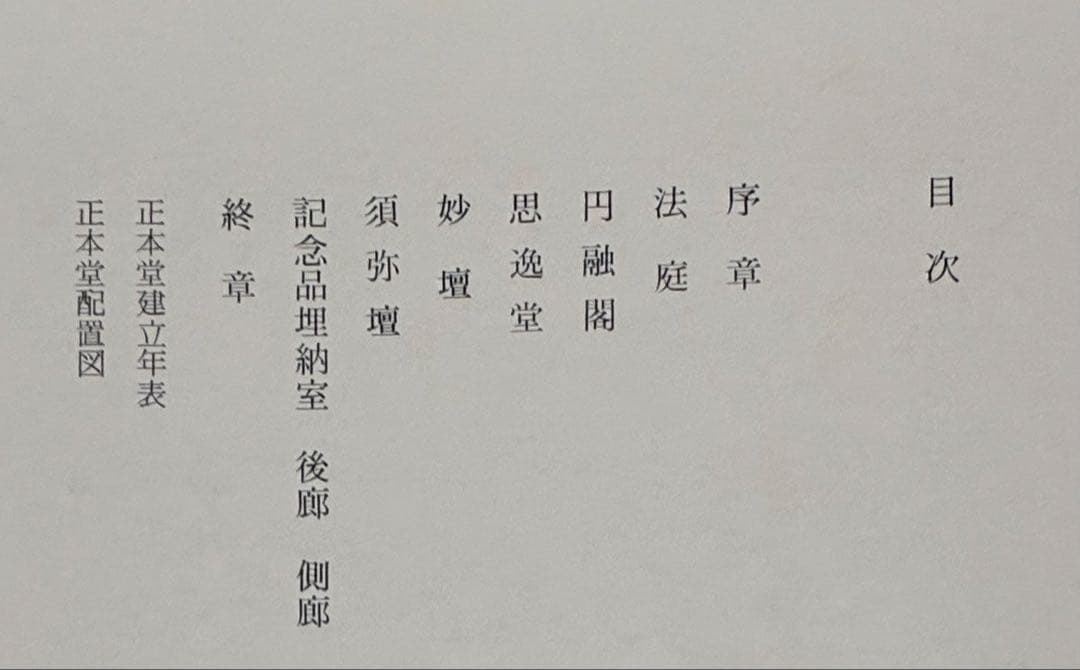 目次
序章
法庭
円融閣
思逸堂
妙壇
須弥壇
記念品埋納室　後廊　側廊
終章
正本堂建立年表
正本堂配置図